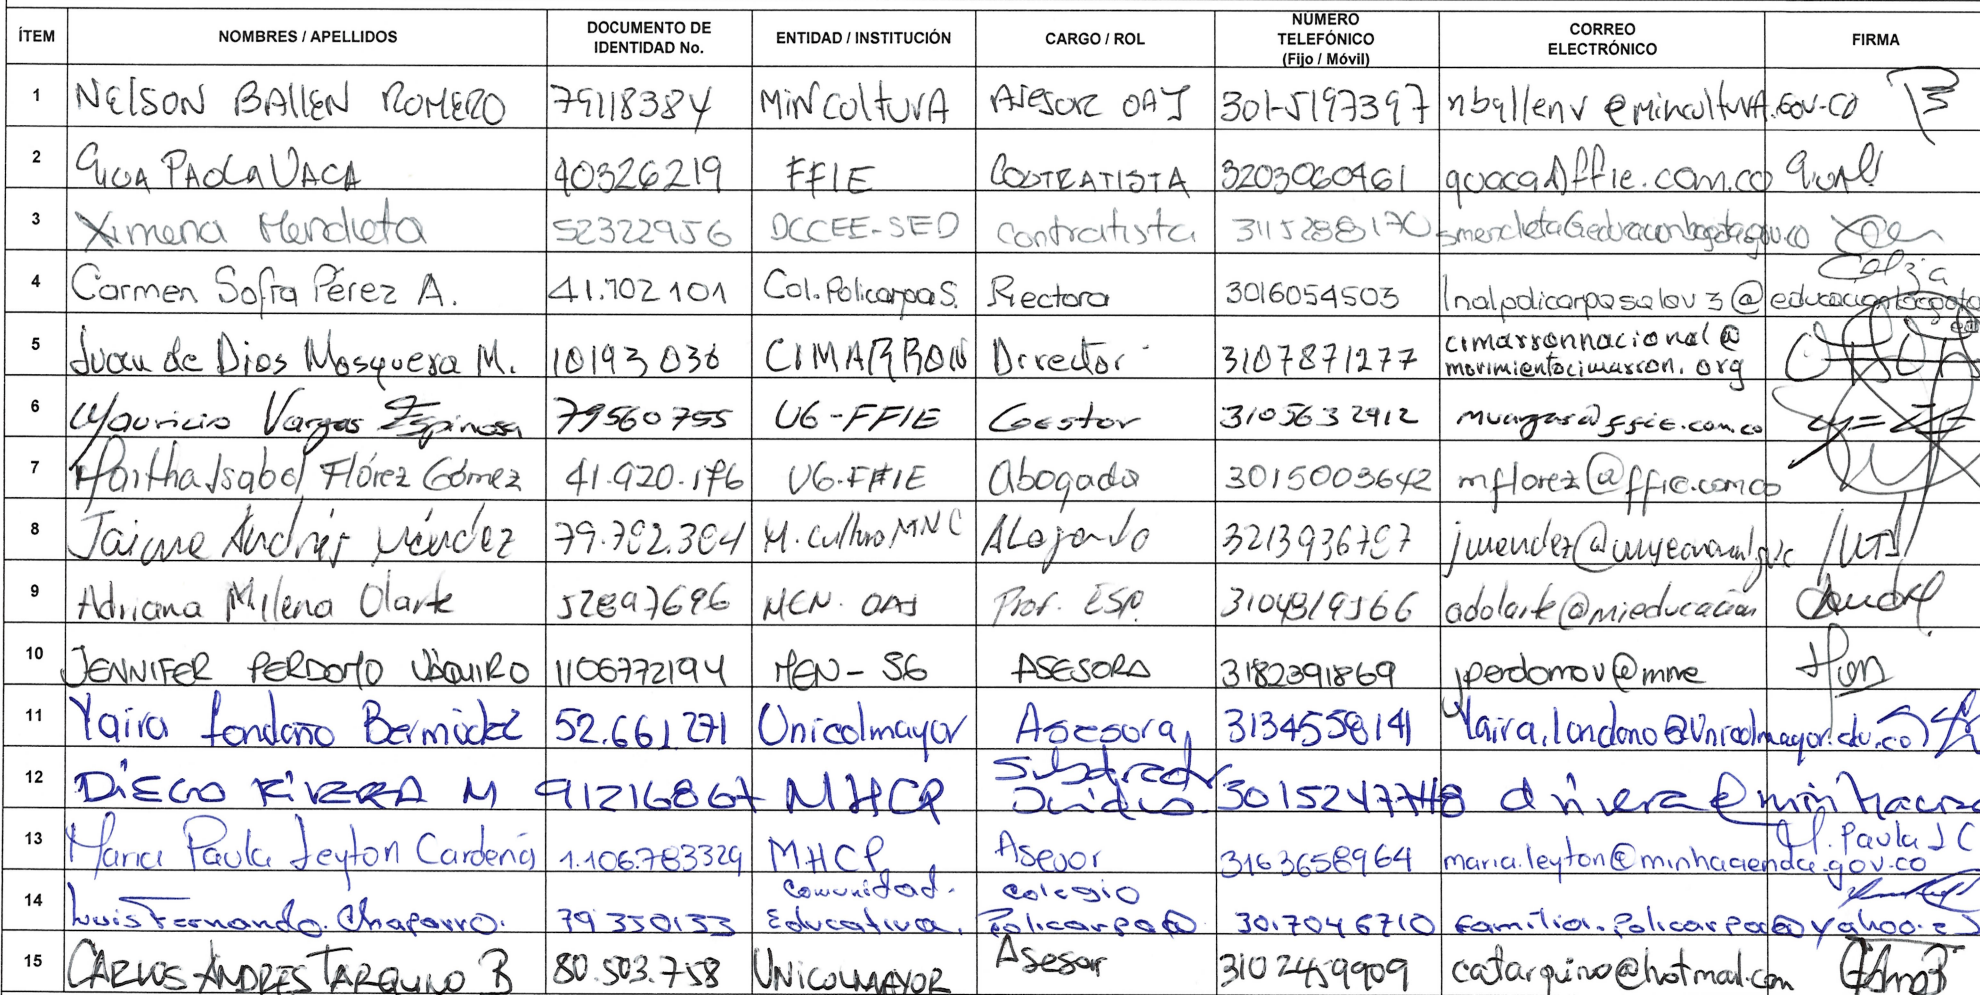 ÍTEM NOMBRES / APELLIDOS DOCUMENTO DE IDENTIDAD No. ENTIDAD / INSTITUCIÓN CARGO / ROL NÚMERO TELEFÓNICO (Fijo / Móvil) CORREO ELECTRÓNICO FIRMA
1 NELSON BALLEN ROMERO 79118384 MINCULTURA ASESOR OAJ 301-5197397 nballenr@mincultura.gov.co
2 PAOLA VACA 40326219 FFIE CONTRATISTA 3203060461 gvaca@ffie.com.co
3 Ximena Mendieta 52322956 DCCEE-SED Contratista 3115288170
4 Carmen Sofía Pérez A. 41.702101 Col. Policarpa S. Rectora 3016054503
5 Juan de Dios Mosquera M. 10193036 CIMARRON Director 3107871277 cimarronnacional@
movimientocimarron.org
6 Mauricio Vargas Espinosa 79560755 UG-FFIE Gestor 3105632912 mvargas@ffie.com.co
7 Martha Isabel Flórez Gómez 41.920.176 UG-FFIE Abogada 3015003642 mflorez@ffie.com.co
8 Jaime Andrés Méndez 79.782.384 Abogado 3213936787
9 Adriana Milena Olarte 52897696 MEN. OAJ Prof. ESP. 3104819566 adolarte@mieducación
10 JENNIFER PERDOMO VAQUIRO 1106772194 MEN-SG ASESORA 3182391869 jperdomov@mne
11 Yaira Londoño Bermúdez 52.661271 Unicolmayor Asesora 3134558141 Yaira.londono@Unicolmayor.edu.co
12 DIEGO RIVERA M 91216867 MHCP Subdirector Jurídico
13 Maria Paula Leyton Cardenas 1.106.783329 MHCP Asesor 3163658964 maria.leyton@minhacienda.gov.co M. Paula L C
14 Luis Fernando Chaparro. 79350133 Comunidad Educativa. Colegio Policarpa 3017046710
15 CARLOS ANDRES TARQUINO B 80.503.758 UNICOLMAYOR Asesor 3102459909 catarquino@hotmail.com